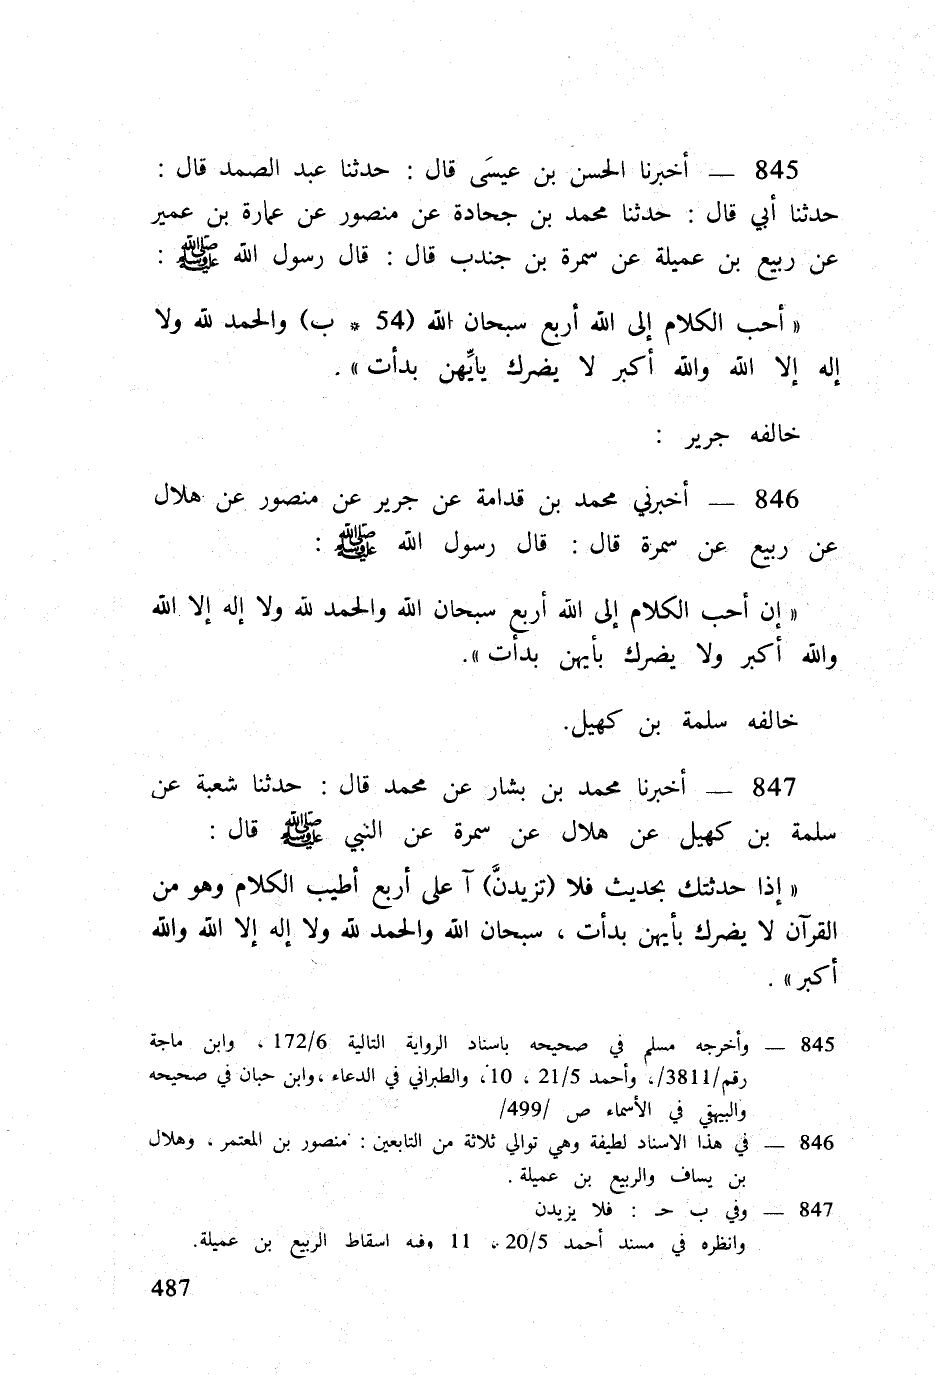 845 — أخبرنا الحسن بن عيسَى قال : حدثنا عبد الصمد قال :
حدثنا أبي قال : حدثنا محمد بن جحادة عن منصور عن عمارة بن عمير
عن ربيع بن عميلة عن سمرة بن جندب قال : قال رسول الله ﷺ :
« أحب الكلام إلى الله أربع سبحان الله (54 * ب) والحمد لله ولا
إله إلا الله والله أكبر لا يضرك يايِّهن بدأت » .
خالفه جرير :
846 — أخبرني محمد بن قدامة عن جرير عن منصور عن هلال
عن ربيع عن سمرة قال : قال رسول الله ﷺ :
« إن أحب الكلام إلى الله أربع سبحان الله والحمد لله ولا إله إلا الله
والله أكبر ولا يضرك بأيهن بدأت ».
خالفه سلمة بن كهيل.
847 — أخبرنا محمد بن بشار عن محمد قال : حدثنا شعبة عن
سلمة بن كهيل عن هلال عن سمرة عن النبي ﷺ قال :
« إذا حدثتك بحديث فلا (تزيدنَّ) آ على أربع أطيب الكلام وهو من
القرآن لا يضرك بأيهن بدأت ، سبحان الله والحمد لله ولا إله إلا الله والله
أكبر » .
845 — وأخرجه مسلم في صحيحه باسناد الرواية التالية 172/6 ، وابن ماجة
رقم/3811/، وأحمد 21/5 ، 10 ، والطبراني في الدعاء ، وابن حبان في صحيحه
والبيهقي في الأسماء ص /499/
846 — في هذا الاسناد لطيفة وهي توالي ثلاثة من التابعين : منصور بن المعتمر ، وهلال
بن يساف والربيع بن عميلة .
847 — وفي ب حـ : فلا يزيدن
وانظره في مسند أحمد 20/5 ، 11 وفيه اسقاط الربيع بن عميلة.
487